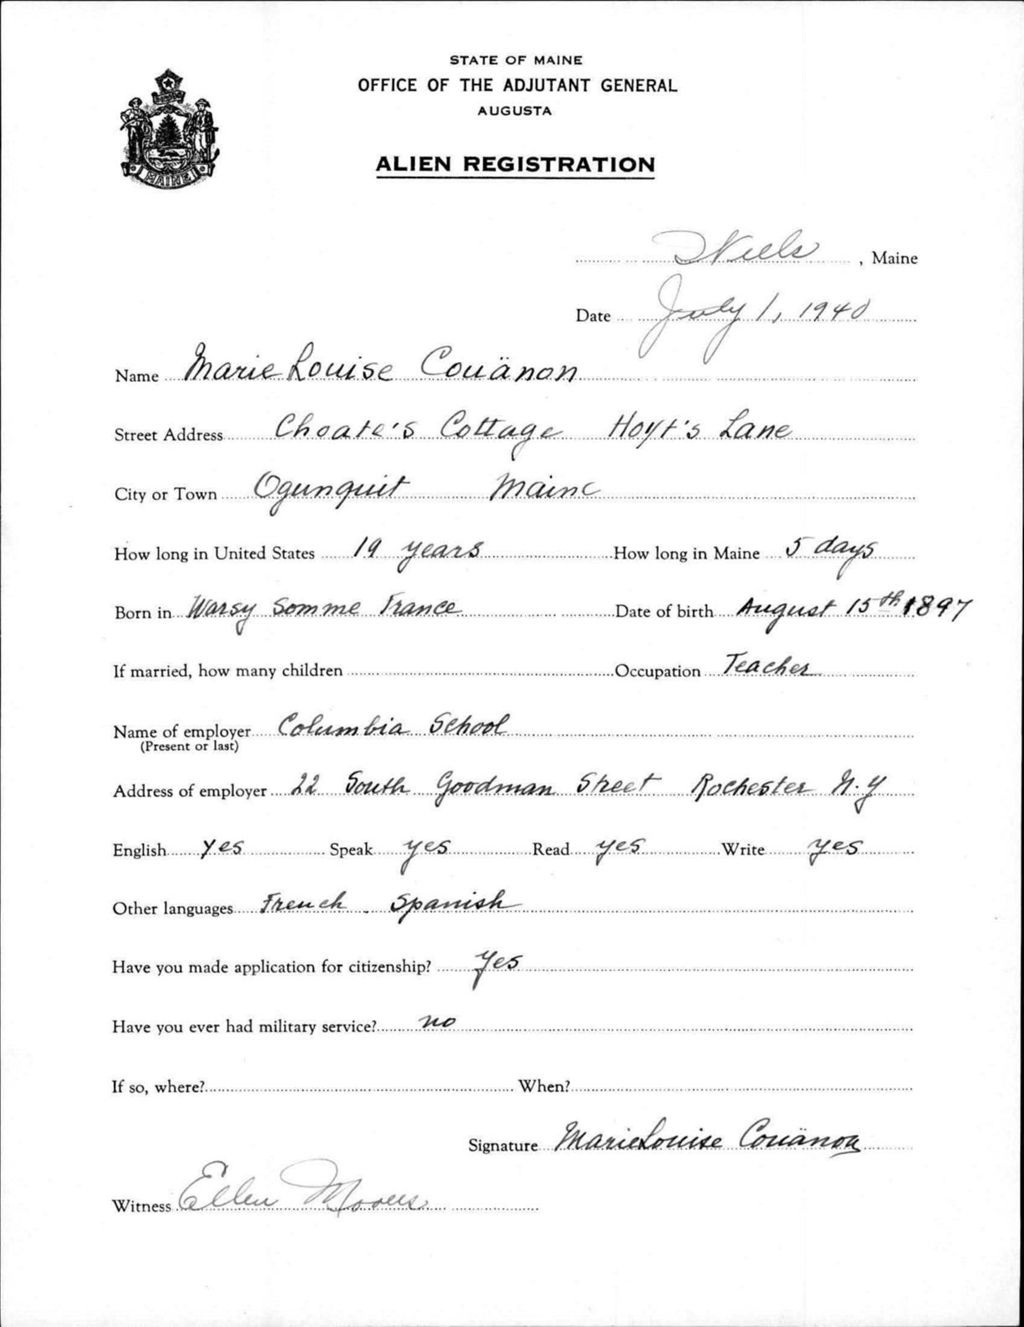 STATE OF MAINE
OFFICE OF THE ADJUTANT GENERAL
AUGUSTA
ALIEN REGISTRATION
MAINE
Wells, Maine
Date July 1, 1940
Name Marie Louise Couänon
Street Address Choate's Cottage Hoyt's Lane
City or Town Ogunquit Maine
How long in United States 19 years How long in Maine 5 days
Born in Warsy Somme France Date of birth August 15th 1897
If married, how many children Occupation Teacher
Name of employer Columbia School
(Present or last)
Address of employer 22 South Goodman Street Rochester N.Y
English yes Speak yes Read yes Write yes
Other languages French . Spanish
Have you made application for citizenship? Yes
Have you ever had military service? no
If so, where? When?
Signature Marie Louise Couänon
Witness Ellen